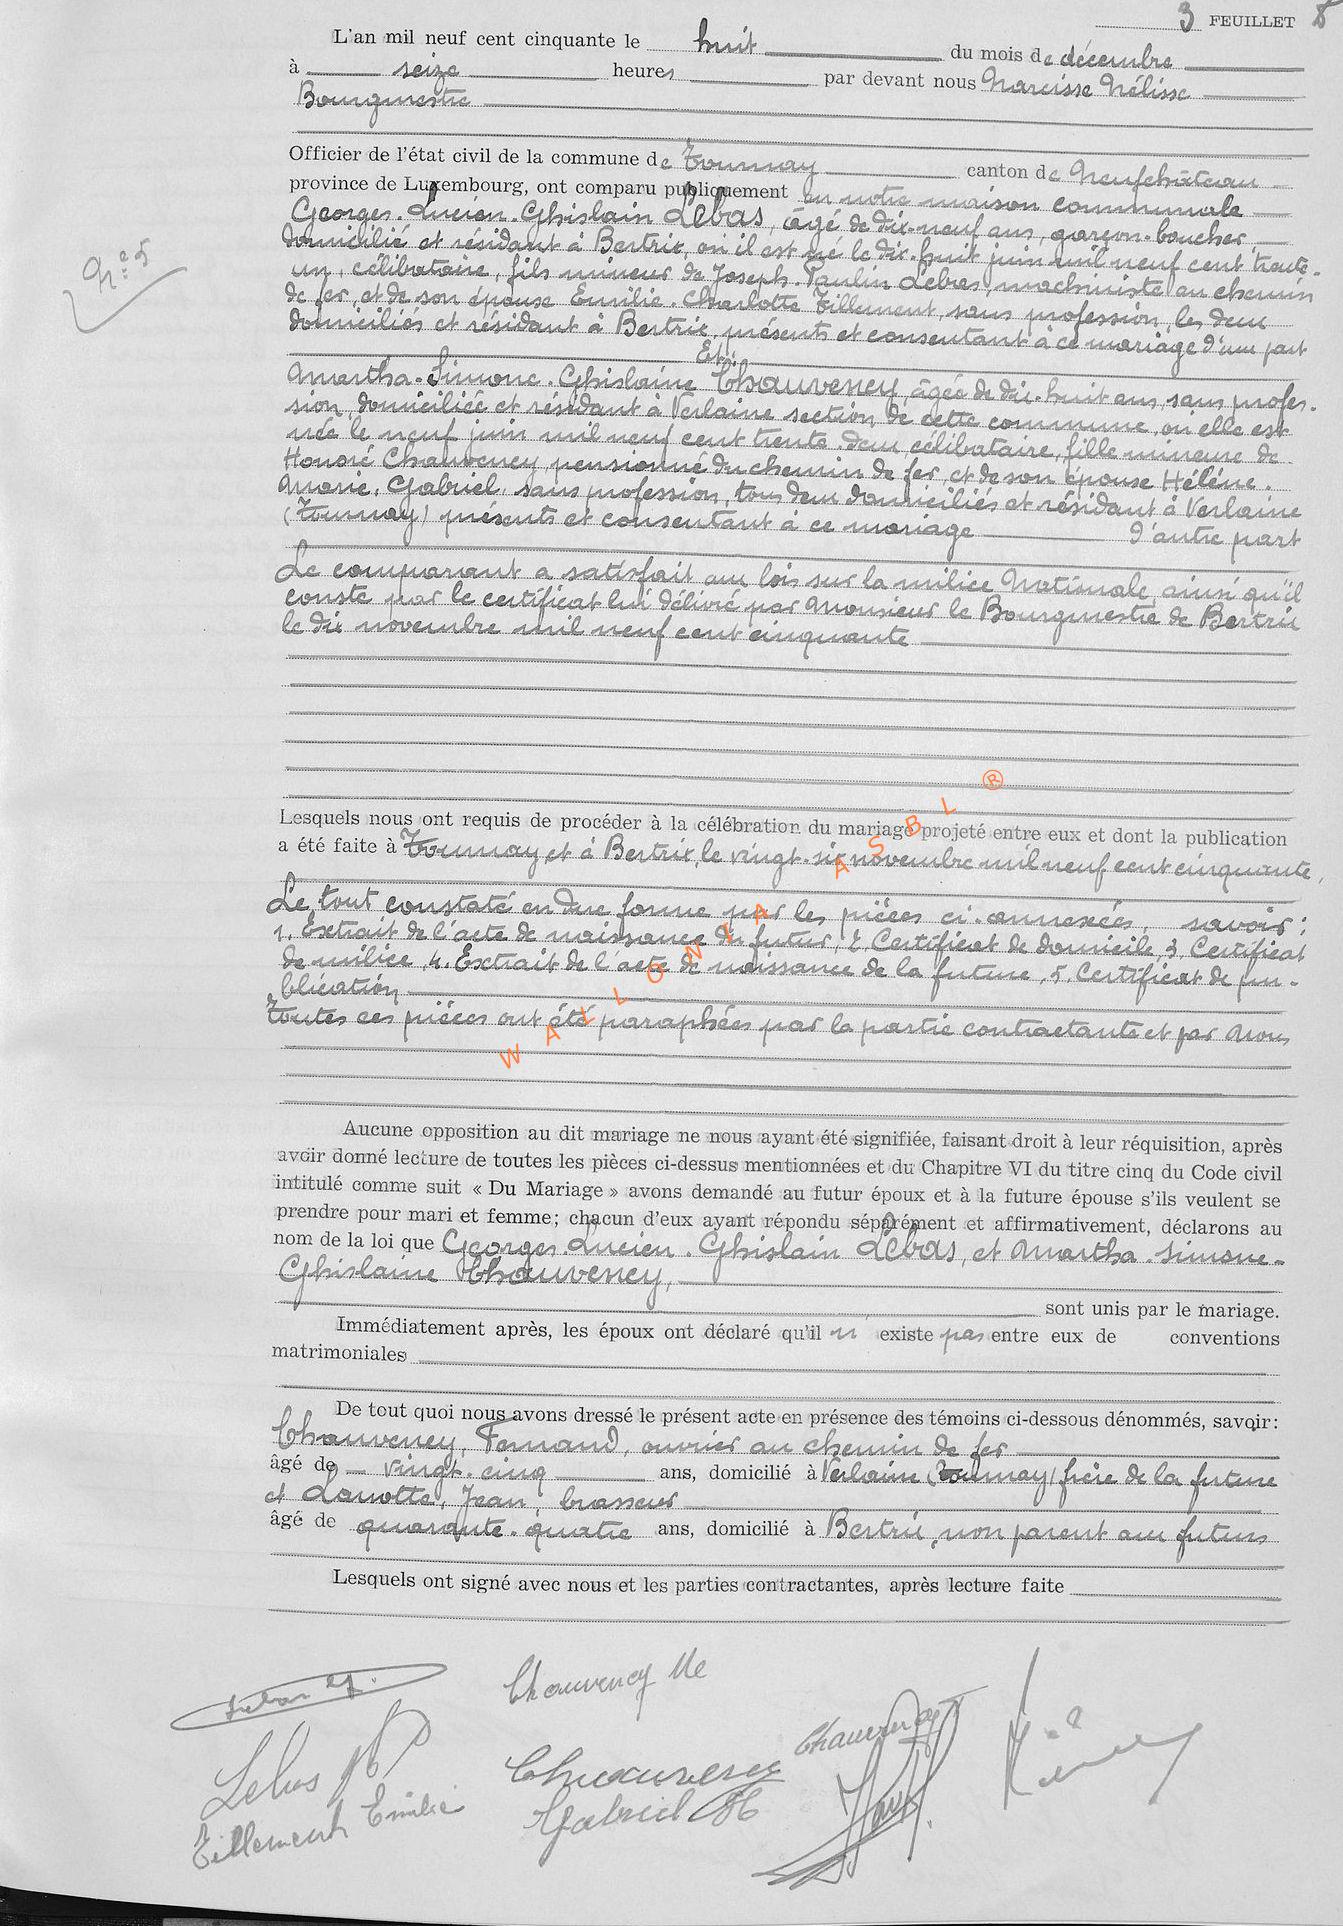 3 FEUILLET 8
L'an mil neuf cent cinquante le huit du mois de décembre
à seize heures par devant nous Narcisse Nélisse
Bourgmestre
Officier de l'état civil de la commune de Tournay canton de Neufchâteau
province de Luxembourg, ont comparu publiquement en notre maison communale
Georges-Lucien-Ghislain Lebas, âgé de dix-neuf ans, garçon-boucher
domicilié et résidant à Bertrix, où il est né le dix-huit juin mil neuf cent trente-
un, célibataire, fils mineur de Joseph-Paulin Lebas, machiniste au chemin
de fer, et de son épouse Emilie-Charlotte Tillement, sans profession, les deux
domiciliés et résidant à Bertrix, présents et consentant à ce mariage d'une part
Et
N° 5
Martha-Simone-Ghislaine Chauvency, âgée de dix-huit ans, sans profes-
sion, domiciliée et résidant à Verlaine section de cette commune, où elle est
née le neuf juin mil neuf cent trente-deux, célibataire, fille mineure de
Honoré Chauvency, pensionné du chemin de fer, et de son épouse Hélène-
Marie, Gabriel, sans profession, tous deux domiciliés et résidant à Verlaine
(Tournay) présents et consentant à ce mariage d'autre part
Le comparant a satisfait aux lois sur la milice Nationale, ainsi qu'il
conste par le certificat lui délivré par Monsieur le Bourgmestre de Bertrix
le dix novembre mil neuf cent cinquante
Lesquels nous ont requis de procéder à la célébration du mariage projeté entre eux et dont la publication
a été faite à Tournay et à Bertrix, le vingt-six novembre mil neuf cent cinquante,
Le tout constaté en due forme par les pièces ci-annexées, savoir:
1. Extrait de l'acte de naissance du futur, 2. Certificat de domicile, 3. Certificat
de milice, 4. Extrait de l'acte de naissance de la future, 5. Certificat de pu-
blication
Toutes ces pièces ont été paraphées par la partie contractante et par nous
WALLONIA ASBL ®
Aucune opposition au dit mariage ne nous ayant été signifiée, faisant droit à leur réquisition, après
avoir donné lecture de toutes les pièces ci-dessus mentionnées et du Chapitre VI du titre cinq du Code civil
intitulé comme suit « Du Mariage » avons demandé au futur époux et à la future épouse s'ils veulent se
prendre pour mari et femme; chacun d'eux ayant répondu séparément et affirmativement, déclarons au
nom de la loi que Georges-Lucien-Ghislain Lebas, et Martha-Simone-
Ghislaine Chauvency,
sont unis par le mariage.
Immédiatement après, les époux ont déclaré qu'il n' existe pas entre eux de conventions
matrimoniales
De tout quoi nous avons dressé le présent acte en présence des témoins ci-dessous dénommés, savoir:
Chauvency, Fernand, ouvrier au chemin de fer
âgé de vingt-cinq ans, domicilié à Verlaine (Tournay) frère de la future
et Lanotte, Jean, brasseur
âgé de quarante-quatre ans, domicilié à Bertrix, non parent aux futurs
Lesquels ont signé avec nous et les parties contractantes, après lecture faite
Chauvency Me
Lebas
Chauvency
Chauvency
Tillement Emilie
Gabriel